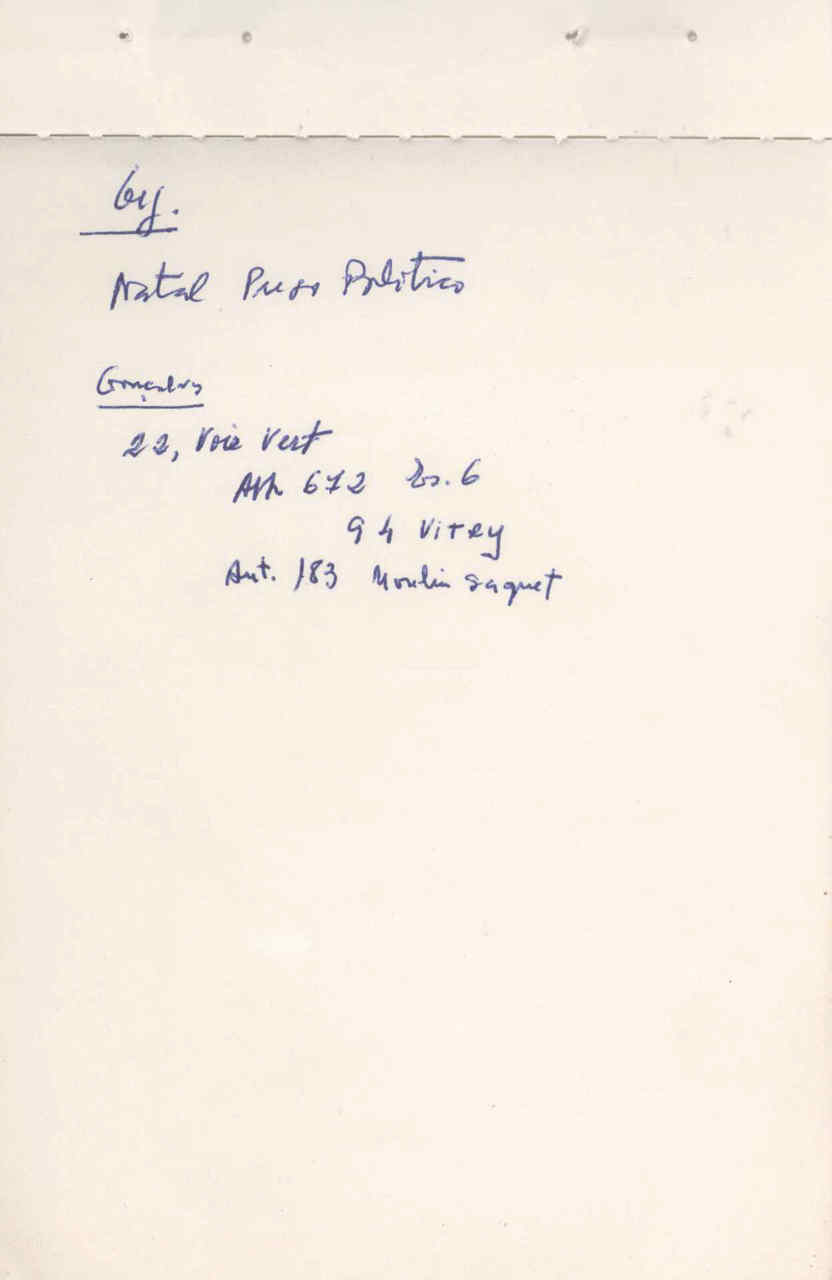 Natal Preso Politico
Gonçalves
22, Voie Vert
App 672 Es. 6
94 Vitry
Aut. 183 Moulin saquet